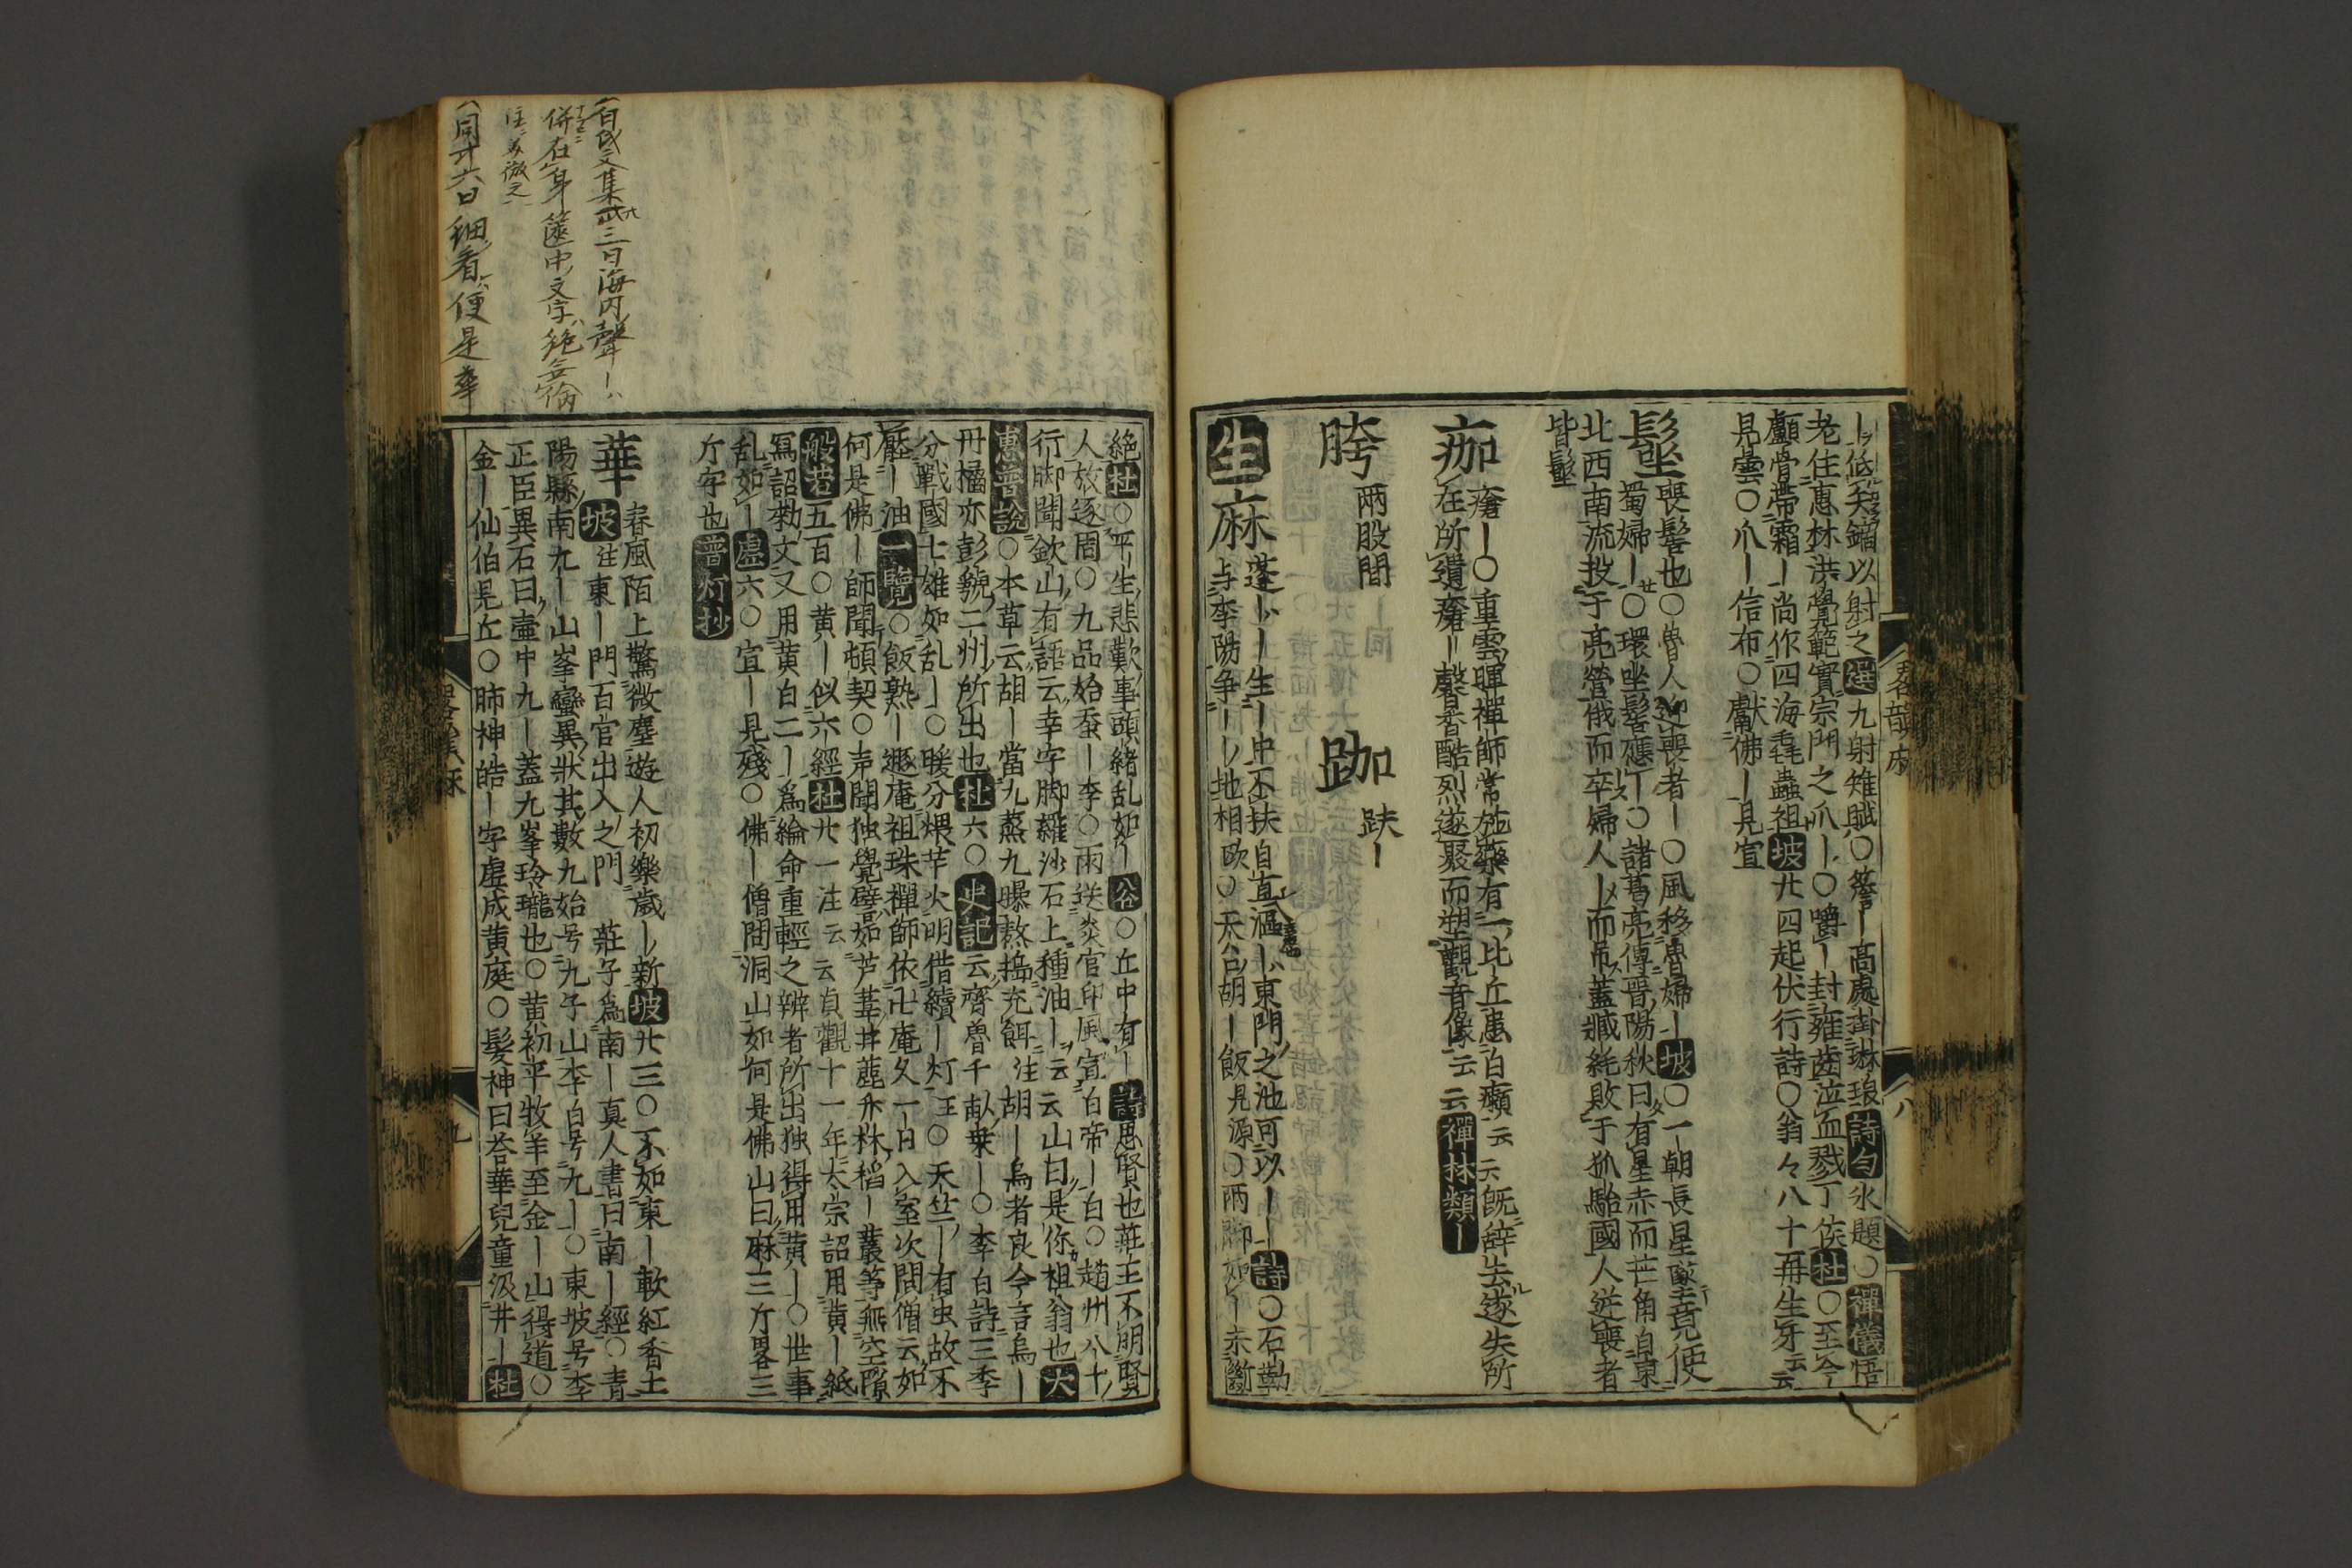 ｜低矢鏑以射之選九射雉賦〇簷｜高處掛琳琅詩勻氷題〇禪儀悟
老住惠林洪覺範實宗門之爪｜〇嚼｜封雍齒泣血戮丁侯杜〇至今｜
顱骨帶霜｜尚作四海毛蟲祖坡廿四起伏行詩〇翁々八十再生牙云云
見曇〇爪｜信布〇獻佛｜見宜
髽
喪髻也〇魯人迎喪者｜〇風移魯婦｜坡〇一朝長星墜竟使
蜀婦｜〇環坐髻應丁〇諸葛亮傳晉陽秋曰有星赤而芒角自東
北西南流投于亮營俄而卒婦人｜而吊蓋臧紇敗于狐駘國人逆喪者
皆髽
痂
瘡｜〇重雲暉禪師常施藥有一比丘患白癩云云既辞去遂失所
在所遺瘡＝馨香酷烈遂聚而塑觀音像云云禪林類｜
胯
兩股間
跏
趺｜
生
麻
蓬｜｜生｜中不扶自直漚｜東門之池可以｜｜詩〇石勒
与李陽争｜｜地相歐〇天台胡｜飯見源〇兩脚如｜未斷
絶杜〇平生悲歡事頭緒乱如｜谷〇丘中有｜詩思賢也莊王不明賢
人放逐周〇九品始蚕｜李〇雨送炎官印風宣白帝｜白〇趙州八十
行脚聞欽山有語云幸字脚羅沙石上種油｜云云山曰是你祖翁也大
惠普說〇本草云胡｜當九蒸九曝熬搗充餌注胡｜烏者良今言烏｜
冊橘亦彭貌二州所出也杜六〇史記云齊魯千畝桑｜〇李白詩三季
分戰國七雄如乱｜〇暖分煨芋火明借續｜灯〇天竺｜有虫故不
壓｜油一覽〇飯熟｜遯庵祖珠禪師依卍庵久一日入室次問僧云如
何是佛｜師聞頓契〇声聞独覺譬如芦葦井蓙禾林稻｜叢等無空隙
般若五百〇黄｜似六經杜廿一注云云貞觀十一年太宗詔用黄｜紙
寫詔勅文又用黄白二｜爲綸命重輕之辨者所出独得用黄｜〇世事
乱如｜虛六〇宜｜見殘〇佛｜僧問洞山如何是佛山曰麻三斤畧三
斤字也普灯抄
華
春風陌上驚微塵遊人初樂歲｜新坡廿三〇不如東｜軟紅香土
坡注東｜門百官出入之門 莊子爲南｜真人書曰南｜經〇青
陽縣南九｜山峯巒異狀其數九始号九子山李白号九｜〇東坡号李
正臣異石曰壷中九｜蓋九峯玲瓏也〇黄初平牧羊至金｜山得道〇
金｜仙伯見丘〇肺神皓｜字虛成黄庭〇髮神曰荅華兒童汲井｜杜
白氏文集三曰海内聲｜
併在身篋中文字絶無倫
注美微之
同廿六曰細看便是華